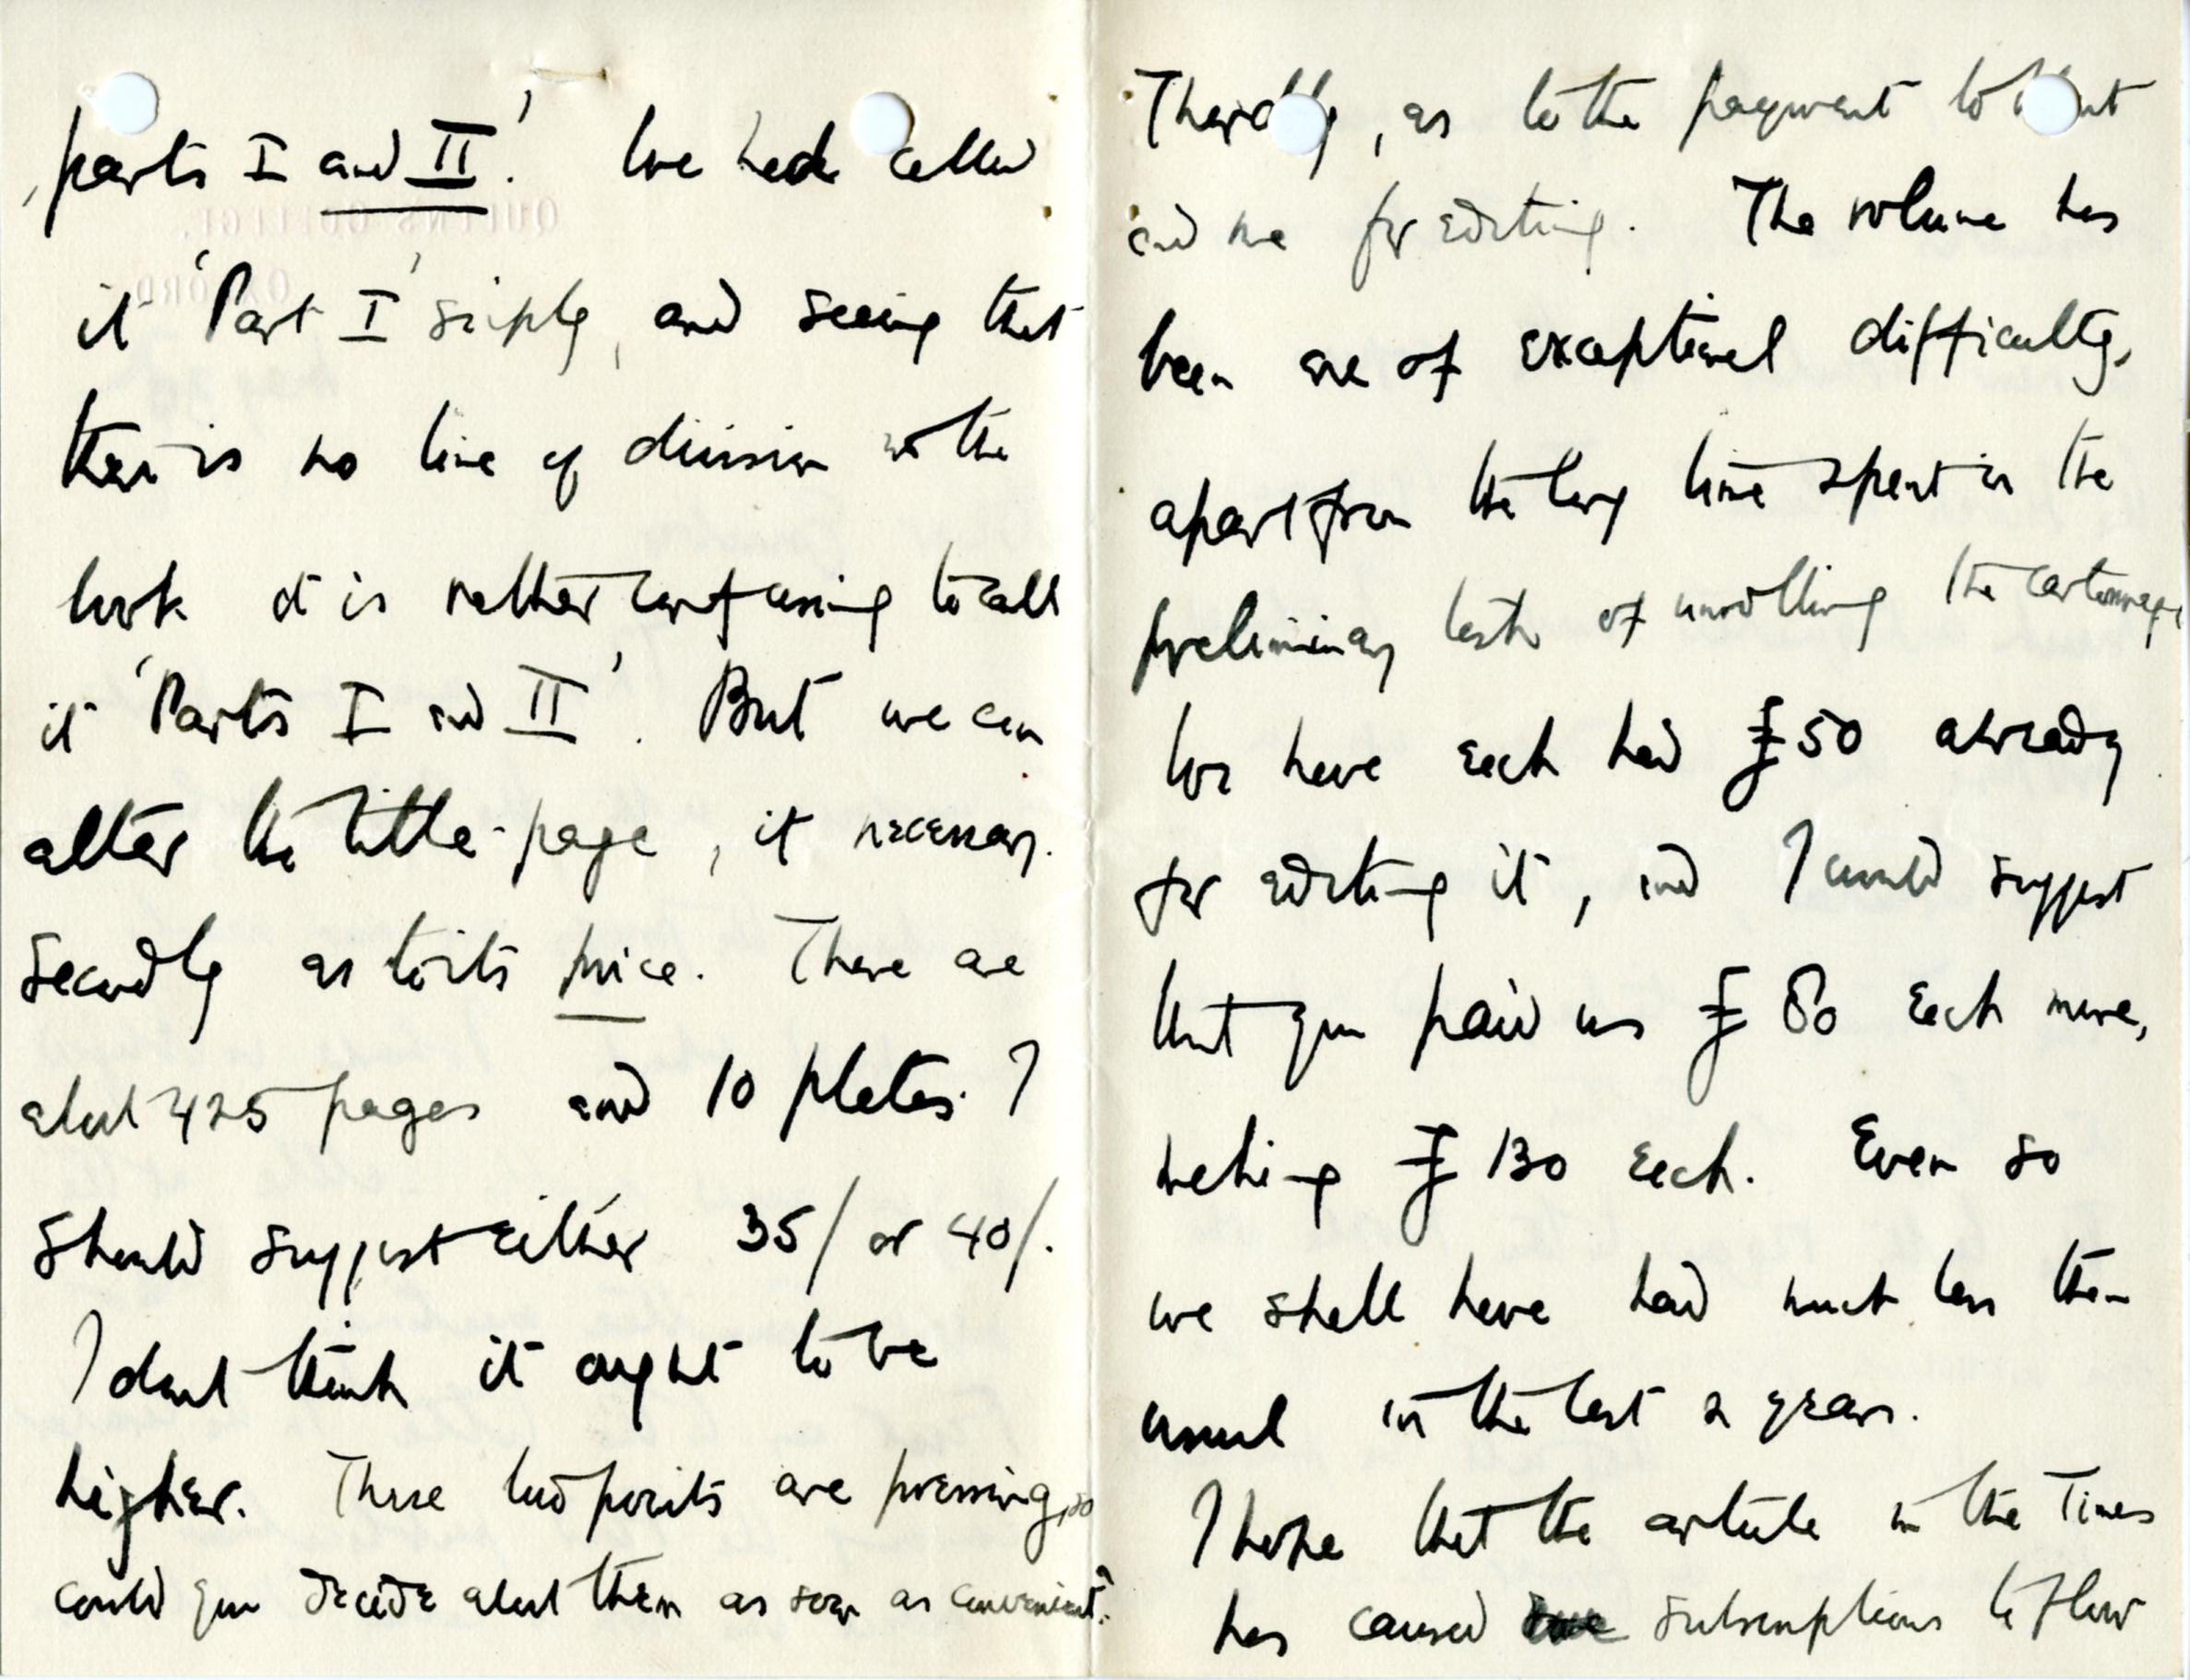 parts I and II.' We had called
it 'Part I' simply, and seeing that
there is no line of division in the
book it is rather confusing to call
it 'Parts I and II'. But we can
alter the title-page, if necessary.
Secondly as to its price. There are
about 425 pages and 10 plates. I
should suggest either 35/ or 40/.
I dont think it ought to be
higher. These two points are pressing, so
could you decide about them as soon as convenient?
Thirdly, as to the payment to Hunt
and me for editing. The volume has
been one of exceptional difficulty,
apart from the long time spent in the
preliminary task of unrolling the cartonnage
We have each had £50 already
for editing it, and I would suggest
that you paid us £80 each more,
making £130 each. Even so
we shall have had much less than
usual in the last 2 years.
I hope that the article in the Times
has caused subscriptions to flow
QUEEN'S COLLEGE,
OXFORD